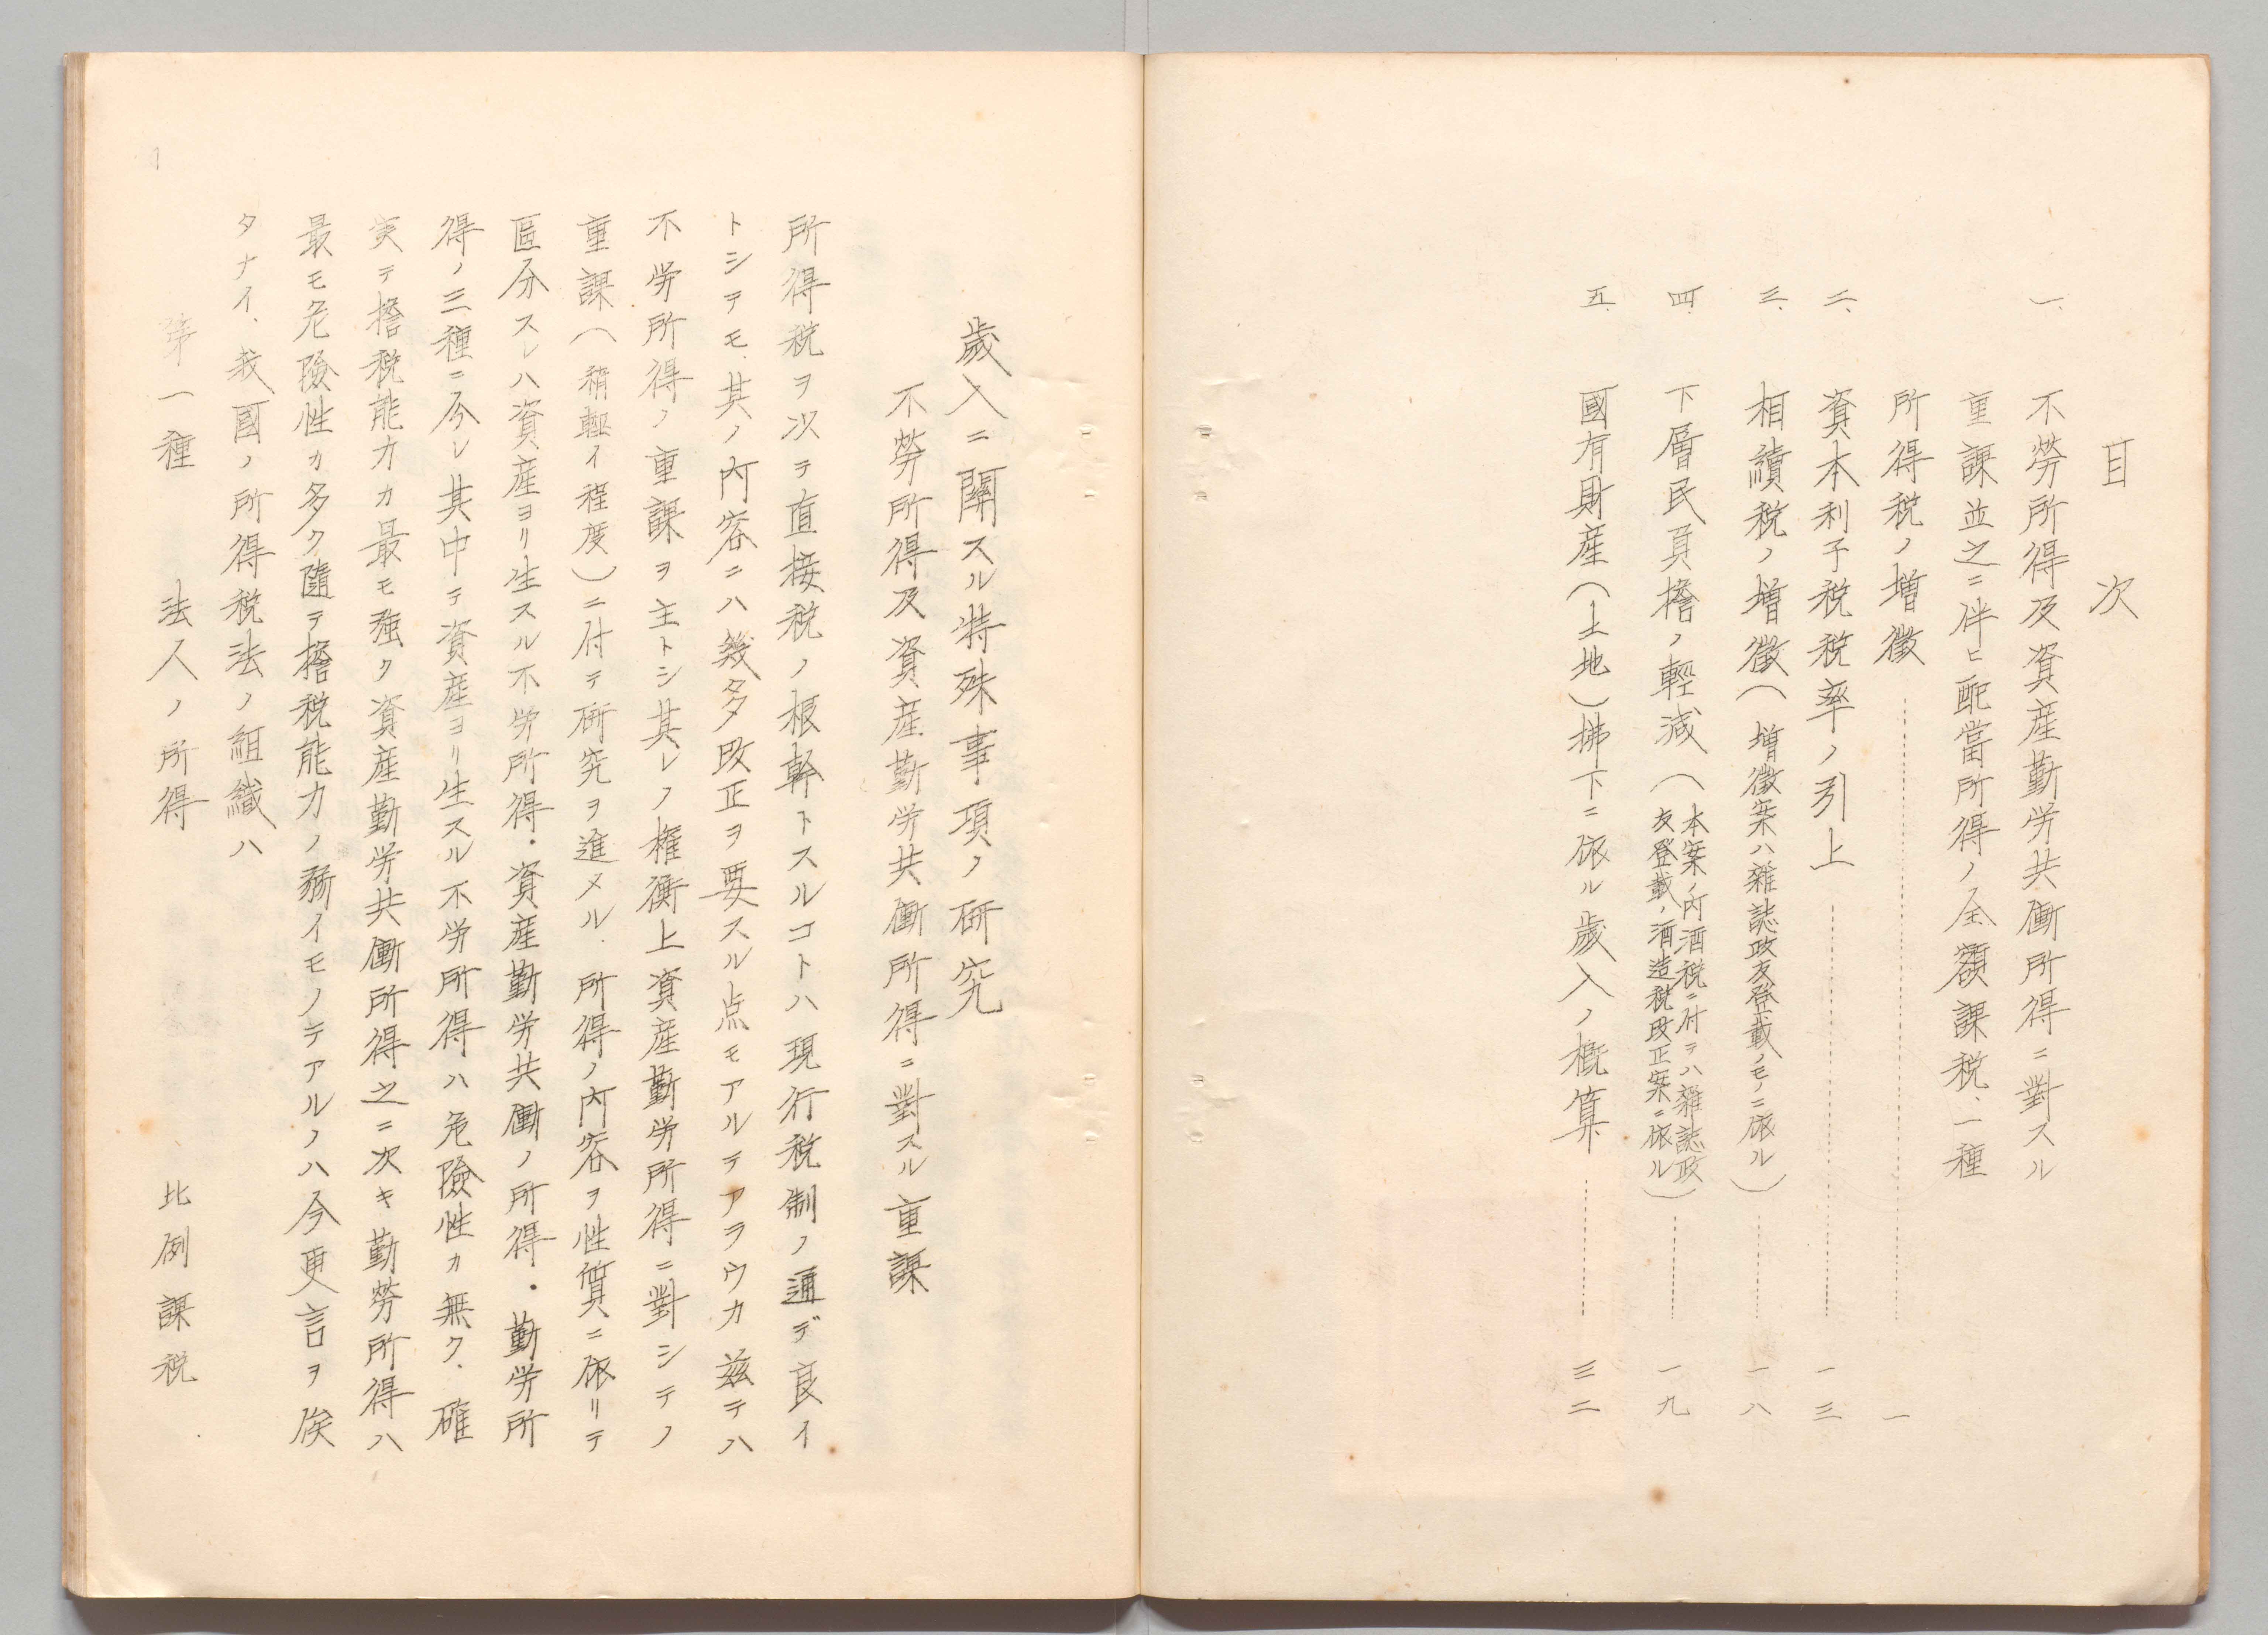 目次
一、不勞所得及資産勤労共働所得ニ對スル
重課並之ニ伴ヒ配當所得ノ全額課税、一種
所得税ノ増徴 一
二、資本利子税税率ノ引上 一三
三、相續税ノ増徴(増徴案ハ雜誌政友登載ノモノニ依ル) 一八
四、下層民負擔ノ輕減(本案ノ内酒税ニ付テハ雜誌政
友登載ノ酒造税改正案ニ依ル) 一九
五、國有財産(土地)拂下ニ依ル歳入ノ概算 三二
歳入ニ關スル特殊事項ノ研究
不勞所得及資産勤労共働所得ニ對スル重課
所得税ヲ以テ直接税ノ根幹トスルコトハ現行税制ノ通デ良イ
トシテモ、其ノ内容ニハ幾多改正ヲ要スル点モアルテアラウカ茲テハ
不労所得ノ重課ヲ主トシ其レノ権衡上資産勤労所得ニ對シテノ
重課(稍輕イ程度)ニ付テ研究ヲ進メル、所得ノ内容ヲ性質ニ依リテ
區分スレハ資産ヨリ生スル不労所得・資産勤労共働ノ所得・勤労所
得ノ三種ニ分レ其中テ資産ヨリ生スル不労所得ハ危險性カ無ク、確
実テ擔税能力カ最モ強ク資産勤労共働所得之ニ次キ勤勞所得ハ
最モ危險性カ多ク隨テ擔税能力ノ弱イモノテアルノハ今更言ヲ俟
タナイ、我國ノ所得税法ノ組織ハ
第一種 法人ノ所得 比例課税
1